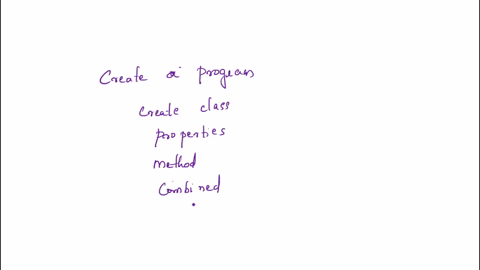 Create a program
Create class
properties
method
Combined